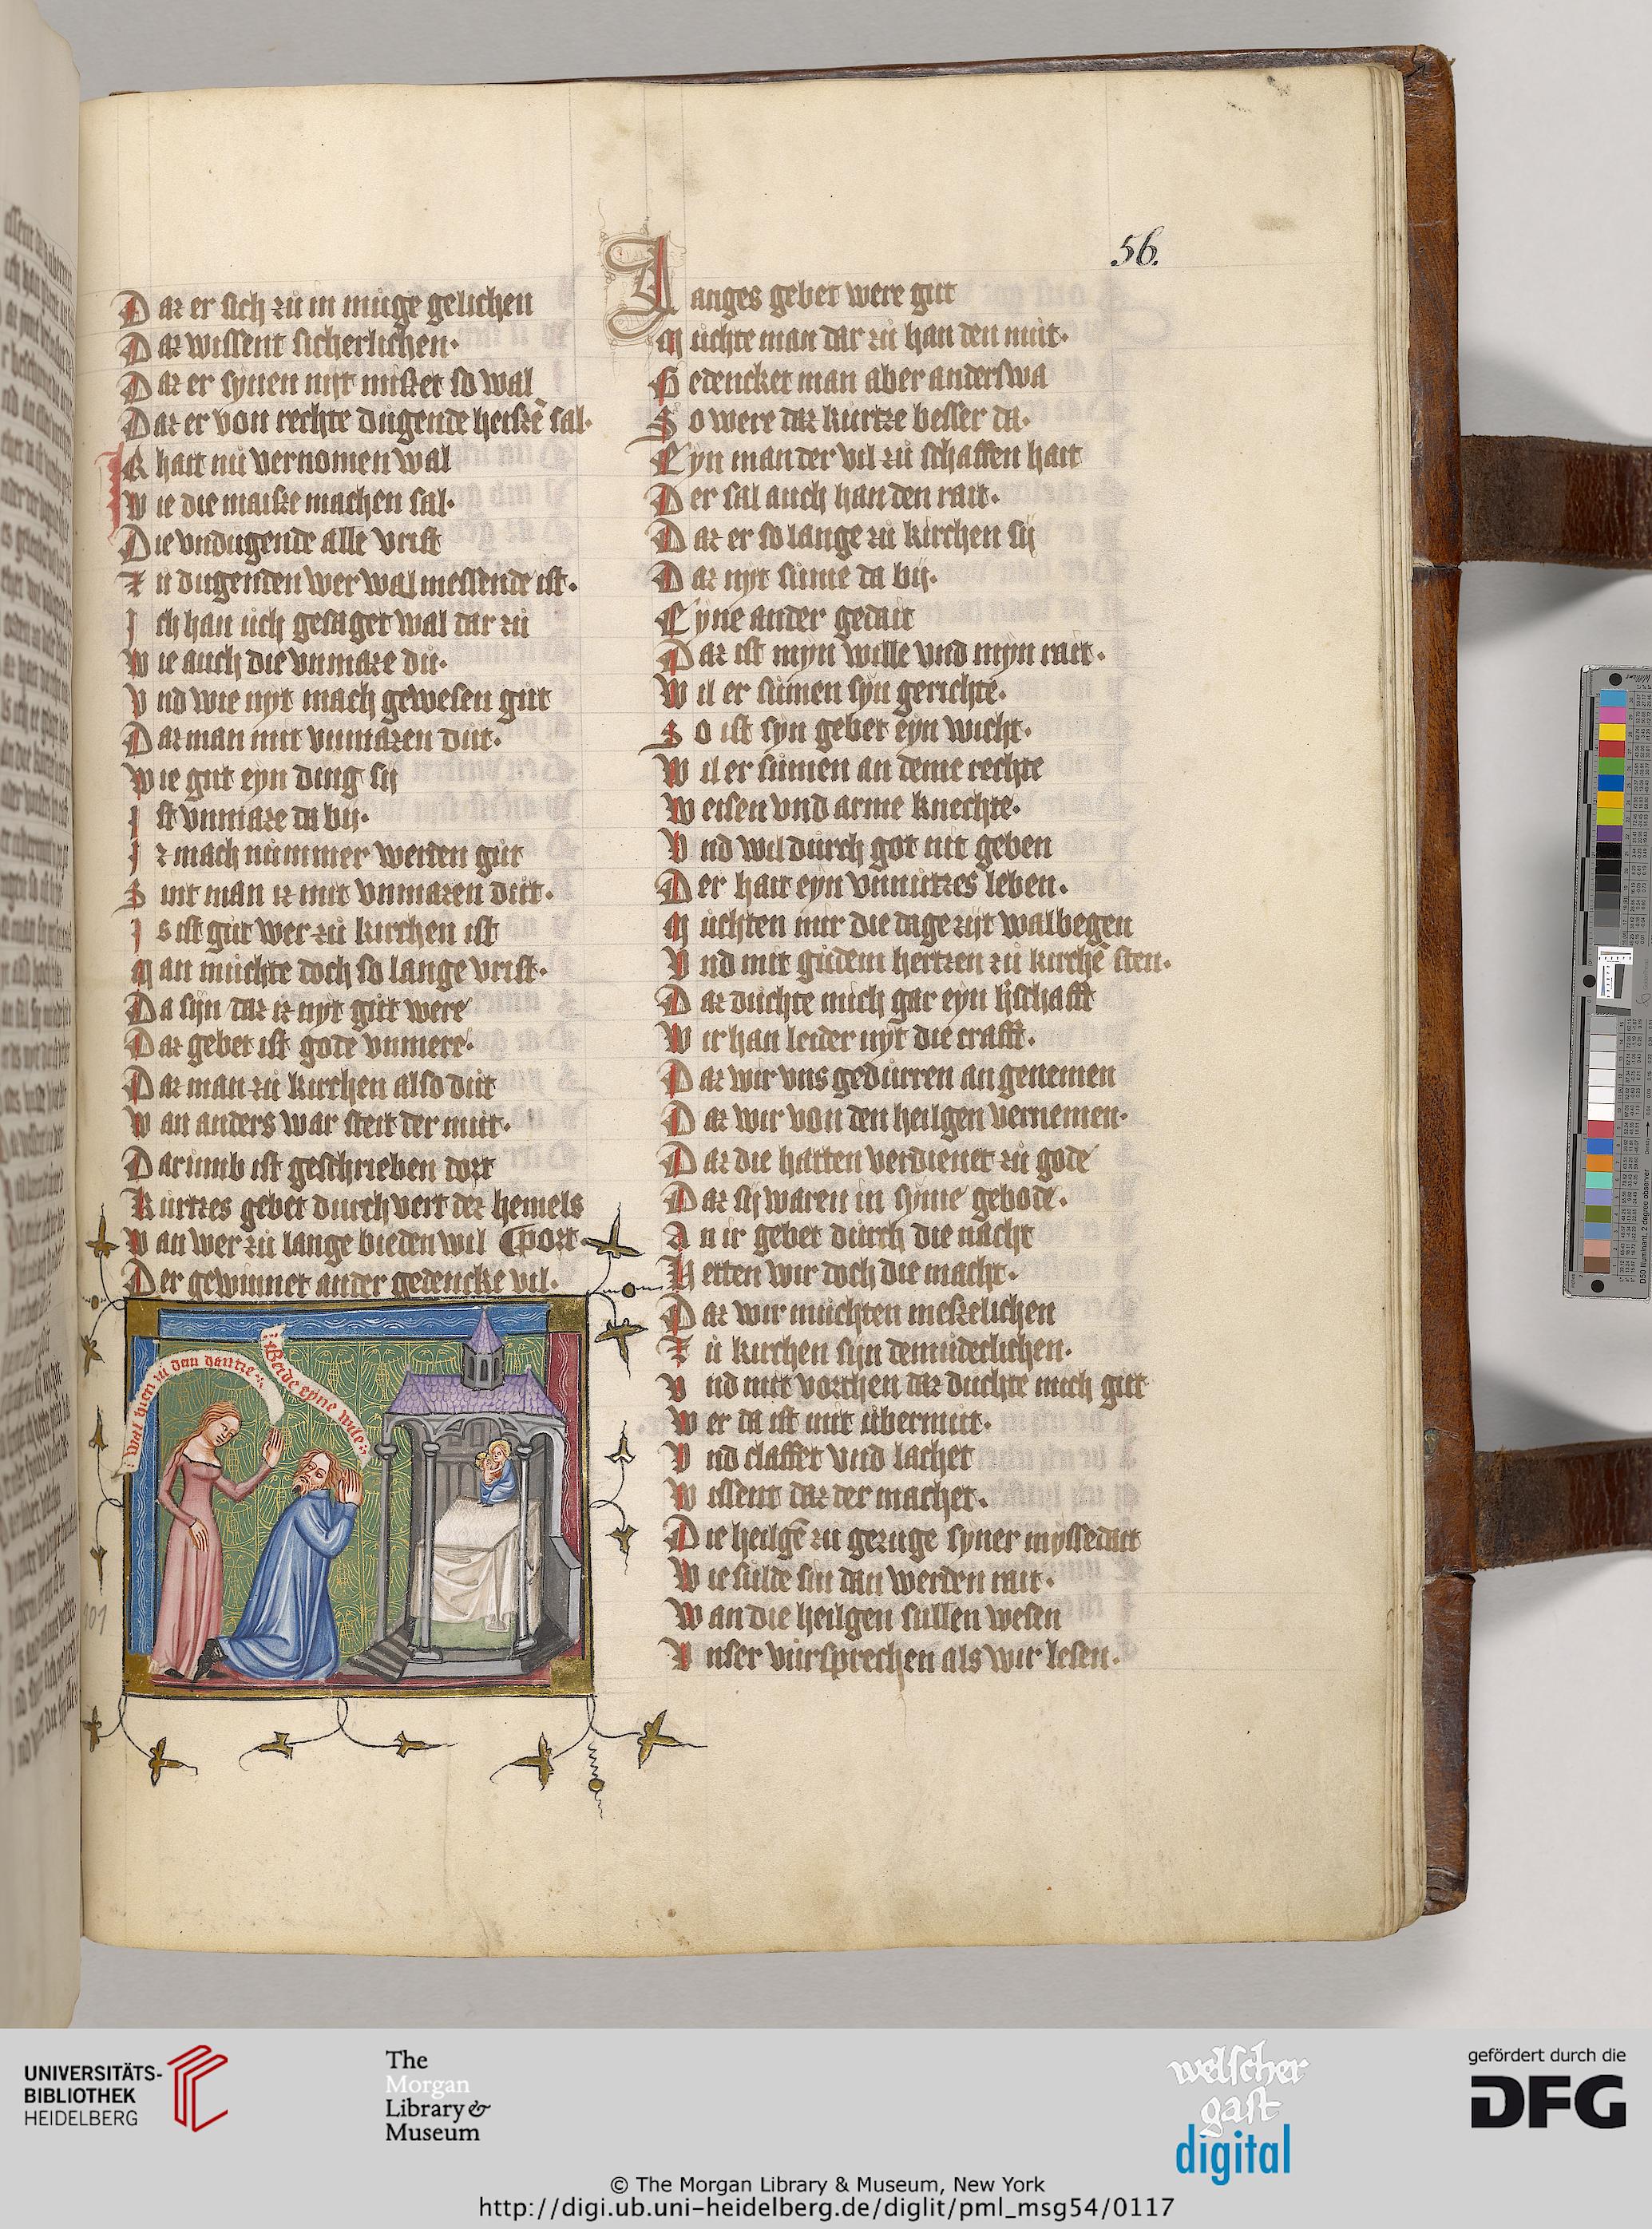 56.
Daz er sich zu in muge gelichen
Daz wissent sicherlichen·
Daz er synen nyt miszet so wal
Daz er von rechte dugende heiszē sal·
Er hait nu vernomen wal
Wie die maisze machen sal·
Die vndugende alle vrist
Zu dugenden wer wal messende ist·
Ich han uch gesaget wal dar zu
Wie auch die vnmaze du·
Vnd wie nyt mach gewesen gut
Daz man mit vnmazen dut·
Wie gut eyn ding sij
Ist vnmaze da bij·
Iz mach nummer werden gut
Sint man iz mit vnmazen dut·
Is ist gut wer zu kirchen ist
Man muchte doch so lange vrist·
Da sijn daz iz nyt gut were
Daz gebet ist gode vnmere·
Daz man zu kirchen also dut
Wan anders war steit der mut·
Darumb ist geschrieben dort
Kurtzes gebet durch vert der hemels
Wan wer zu lange bieden wil port·
Der gewinnet ander gedencke vil·
Wal hien zu dan dantze·
Beide eyne wile·
Langes gebet were gut
Muchte man dar zu han den mut·
Gedencket man aber anderswa
So were daz kurtze besser da·
Eyn man der vil zu schaffen hait
Der sal auch han den rait·
Daz er so lange zu kirchen sij
Daz nyt sume da bij·
Eyne ander gedait
Daz ist myn wille vnd myn rait·
Wil er sumen syn gerichte·
So ist syn gebet eyn wicht·
Wil er sumen an deme rechte
Weisen vnd arme knechte·
Vnd wil durch got nit geben
Der hait eyn vnnutzes leben·
Muchten mir die dagezijt wal begen
Vnd mit gudem hertzen zu kirchē sten·
Daz duchte mich gar eyn hischafft
Wir han leider nyt die crafft·
Daz wir vns gedurren an genemen
Daz wir von den heilgen vernemen·
Daz die hatten verdienet zu gode
Daz sij waren in syme gebode·
An ir gebet durch die nacht
Hetten wir doch die macht·
Daz wir muchten meszelichen
Zu kirchen sijn demuderlichen·
Vnd mit vorchen daz duchte mich gut
Wer da ist mit ubermut·
Vnd claffet vnd lachet
Wissent daz der machet·
Die heilgē zu gezuge syner myssedait
Wie sulde sin dan werden rait·
Wan die heilgen sullen wesen
Vnser vursprechen als wir lesen·
101
UNIVERSITÄTS-
BIBLIOTHEK
HEIDELBERG
The
Morgan
Library &
Museum
welscher
gast
digital
gefördert durch die
DFG
© The Morgan Library & Museum, New York
http://digi.ub.uni-heidelberg.de/diglit/pml_msg54/0117